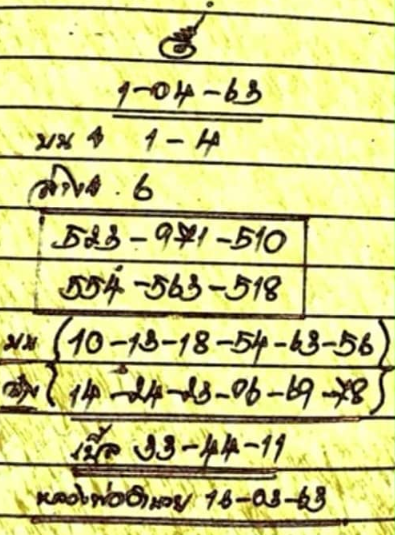 1-04-63
บน 1-4
ล่าง 6
523-971-510
554-563-518
บน (10-13-18-54-63-56)
ล่าง (14-24-23-06-69-78)
เบิ้ล 33-44-11
หลวงพ่ออำนวย 16-03-63